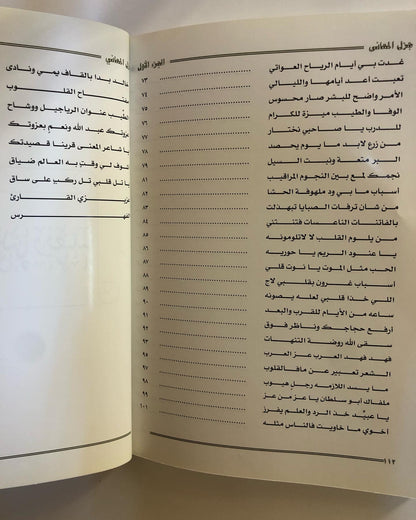 جزل المعاني الجزء الأول
غدت بي أيام الرياح العواتي ........ ٧٣
تعبت أعد أيامها والليالي ........ ٧٤
الأمر واضح للبشر صار محسوس ........ ٧٥
الوفا والطيب ميزة للكرام ........ ٧٦
للدرب يا صاحبي نختار ........ ٧٧
من زرع لابد ما يوم يحصد ........ ٧٨
البر متعة ونيت السيل ........ ٧٩
نجمك لمع بين النجوم المراقيب ........ ٨٠
أسباب ما بي ود ملهوفة الحشا ........ ٨١
من شان ترفات الصبايا تبهذلت ........ ٨٢
بالفاتنات الناعسات فتنتني ........ ٨٤
من يلوم القلب لا لاتلومونه ........ ٨٥
يا عنود الريم يا حوريه ........ ٨٦
الحب مثل الموت يا نوت قلبي ........ ٨٧
أسباب غرون بقلبي لاج ........ ٨٨
اللي خذا قلبي لعله يصونه ........ ٩٠
ساعه من الأيام للقرب والبعد ........ ٩١
أرفع حجاجك وناظر فوق ........ ٩٢
سقى الله روضة التنهات ........ ٩٣
فهد فهد العرب عز العرب ........ ٩٤
الشعر تعبير عن مافالقلوب ........ ٩٥
ما يسد اللازمه رجل هيوب ........ ٩٦
ملفاك أبو سلطان يا عز من عز ........ ٩٨
يا عبيّد خذ الرد والعلم يفرز ........ ٩٩
أخوي ما خاويت فالناس مثله ........ ١٠١
١١٢
المعاني
بدا بالقاف يمي ونادى
القلوب
عنوان الرياجيل ووشاح
عبد الله ونعم بعزوتك
شاعر المعنى قرينا قصيدتك
لي وقت به العالم ضياق
تل قلبي تل ركب على ساق
القارئ